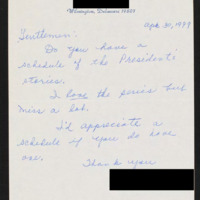 Wilmington, Delaware 19803
Apr. 30, 1979
Gentlemen:
Do you have a
schedule of the Presidents'
stories.
I love the series but
miss a lot.
I'd appreciate a
schedule if you do have
one.
Thank you